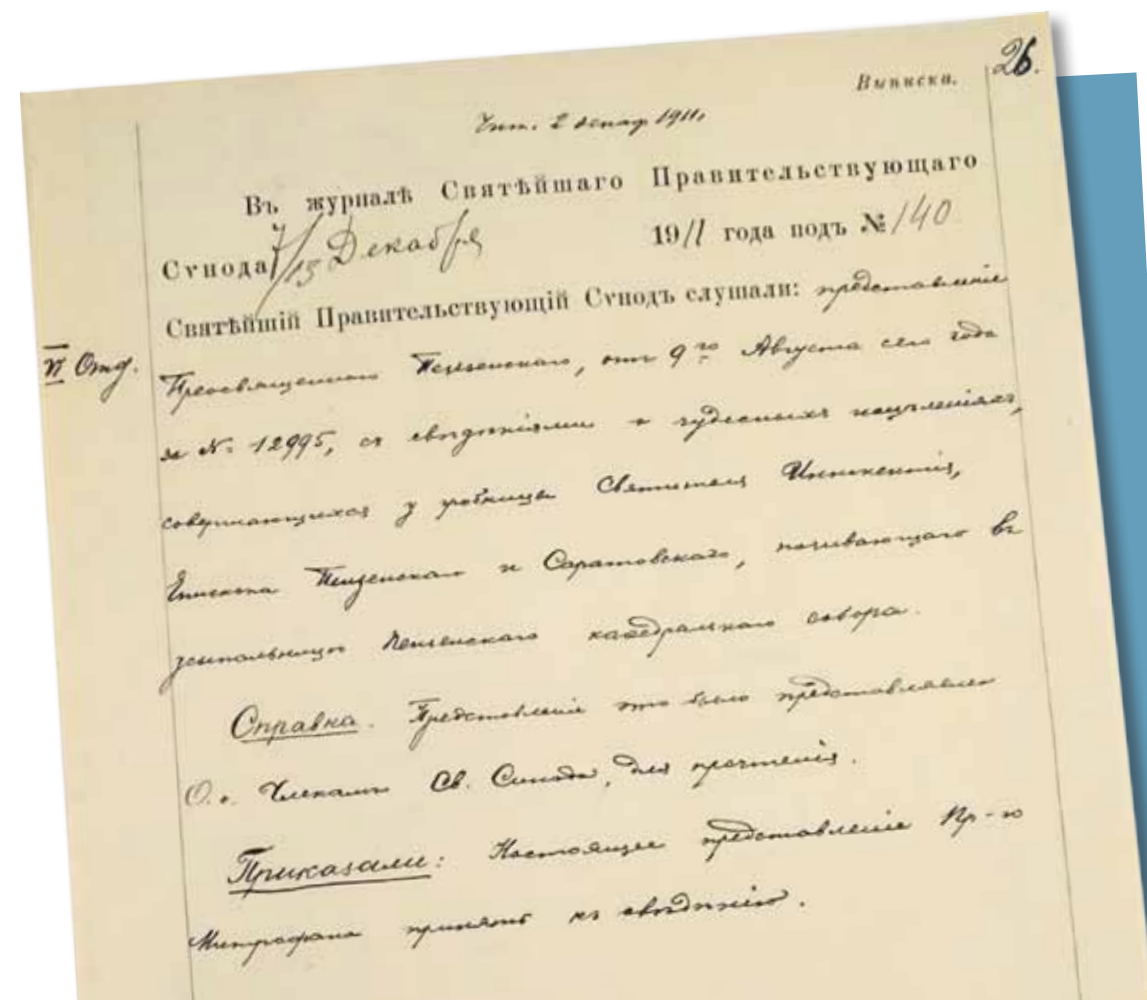 26.
Выписка.
Чит. 2 декаб 1911
Въ журналѣ Святѣйшаго Правительствующаго
Сѵнода 7/15 Декабря 1911 года подъ № 140
Святѣйшій Правительствующій Сѵнодъ слушали: представленіе
VI Отд.
Преосвященнаго Пензенскаго, отъ 9го Августа сего года
за № 12995, съ свѣдѣніями о чудесныхъ исцѣленіяхъ,
совершающихся у гробницы Святителя Иннокентія,
Епископа Пензенскаго и Саратовскаго, почивающаго въ
усыпальницѣ Пензенскаго каѳедральнаго собора.
Справка. Представленіе это было представляемо
О.о. Членамъ Св. Синода, для прочтенія.
Приказали: Настоящее представленіе Пр-го
Митрофана принять къ свѣдѣнію.